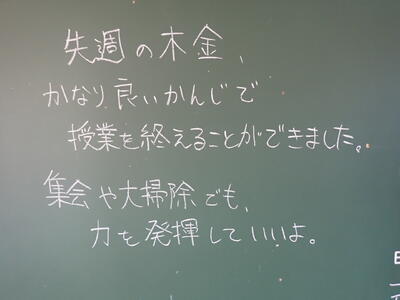 先週の木金、
かなり良いかんじで
授業を終えることができました。
集会や大掃除でも、
力を発揮していいよ。